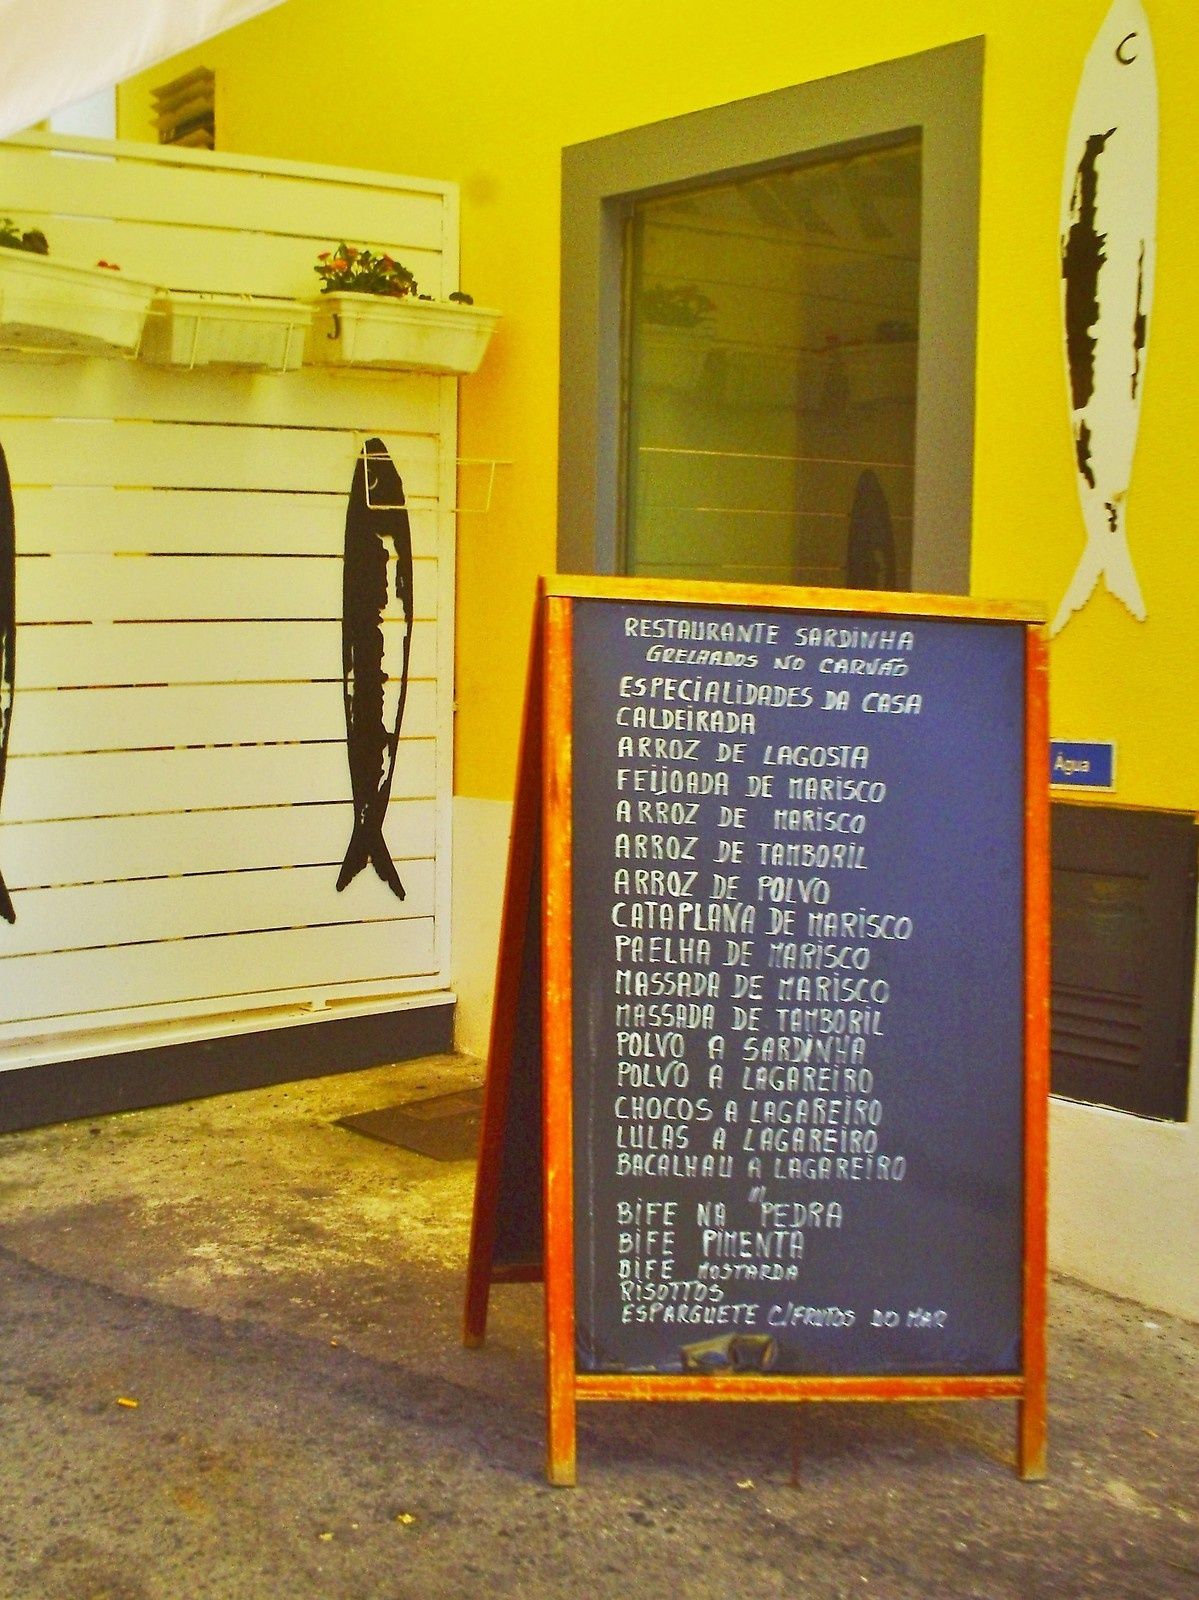 RESTAURANTE SARDINHA
GRELHADOS NO CARVÃO
ESPECIALIDADES DA CASA
CALDEIRADA
ARROZ DE LAGOSTA
FEIJOADA DE MARISCO
ARROZ DE MARISCO
ARROZ DE TAMBORIL
ARROZ DE POLVO
CATAPLANA DE MARISCO
PAELHA DE MARISCO
MASSADA DE MARISCO
MASSADA DE TAMBORIL
POLVO A SARDINHA
POLVO A LAGAREIRO
CHOCOS A LAGAREIRO
LULAS A LAGAREIRO
BACALHAU A LAGAREIRO
BIFE NA PEDRA
BIFE PIMENTA
BIFE MOSTARDA
RISOTTOS
ESPARGUETE C/FRUTOS DO MAR
Água